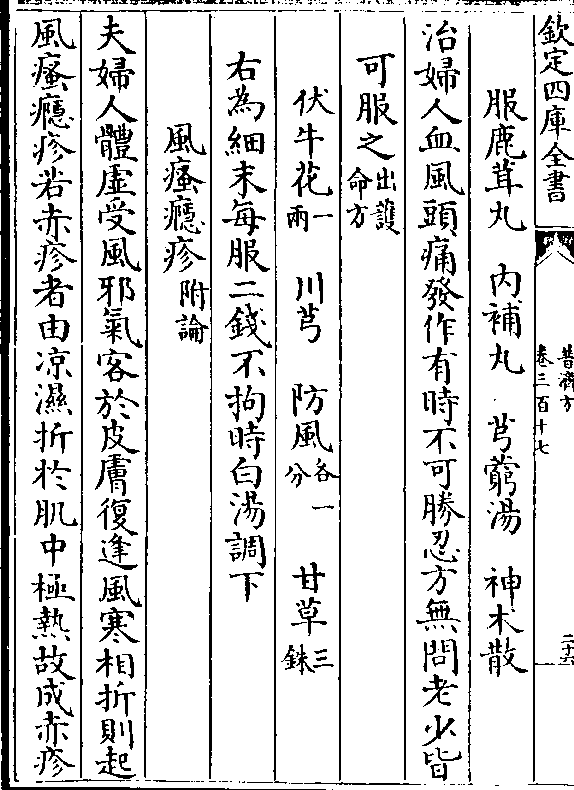 欽定四庫全書
普濟方
卷三百十七
二十六
服鹿茸丸　內補丸　芎藭湯　神木散
治婦人血風頭痛發作有時不可勝忍方無問老少皆
可服之出護命方
伏牛花一兩　川芎　防風各一分　甘草三銖
右為細末每服二錢不拘時白湯調下
風瘙癮疹附論
夫婦人體虛受風邪氣客於皮膚復逢風寒相折則起
風瘙癮疹若赤疹者由凉濕折於肌中極熱故成赤疹